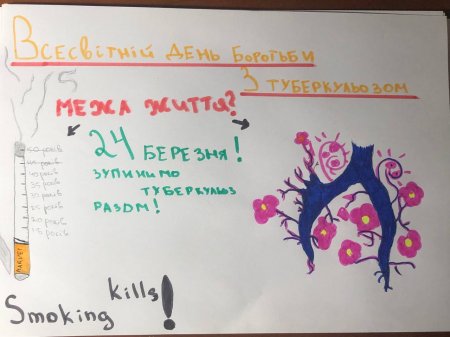 Всесвітній день боротьби
з туберкульозом
межа життя?
24 березня!
зупинимо
туберкульоз
разом!
50 років
45 років
40 років
35 років
30 років
25 років
20 років
15 років
Smoking kills!